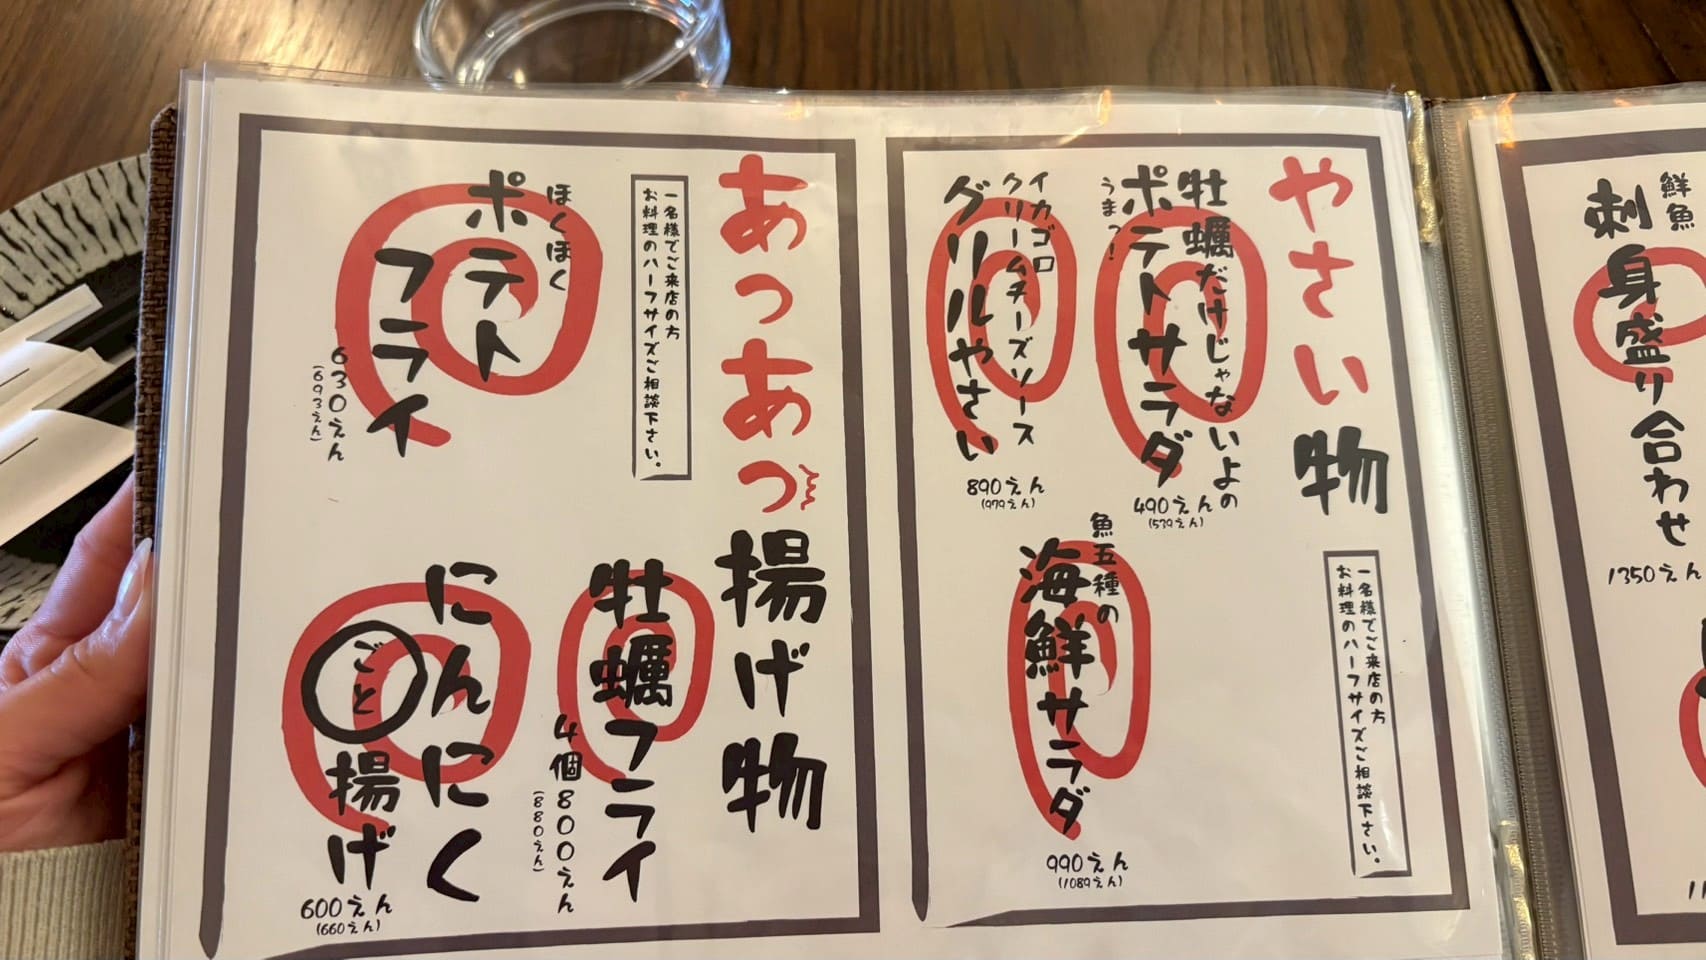 鮮魚
刺身盛り合わせ
1350えん
やさい物
一名様でご来店の方
お料理のハーフサイズご相談下さい。
牡蠣だけじゃないよの
ポテトサラダ
うまっ!
490えん
(539えん)
イカゴロ
クリームチーズソース
グリルやさい
890えん
(979えん)
魚五種の
海鮮サラダ
990えん
(1089えん)
あつあつ揚げ物
一名様でご来店の方
お料理のハーフサイズご相談下さい。
ほくほく
ポテト
フライ
630えん
(693えん)
牡蠣フライ
4個800えん
(880えん)
にんにく
ごと揚げ
600えん
(660えん)